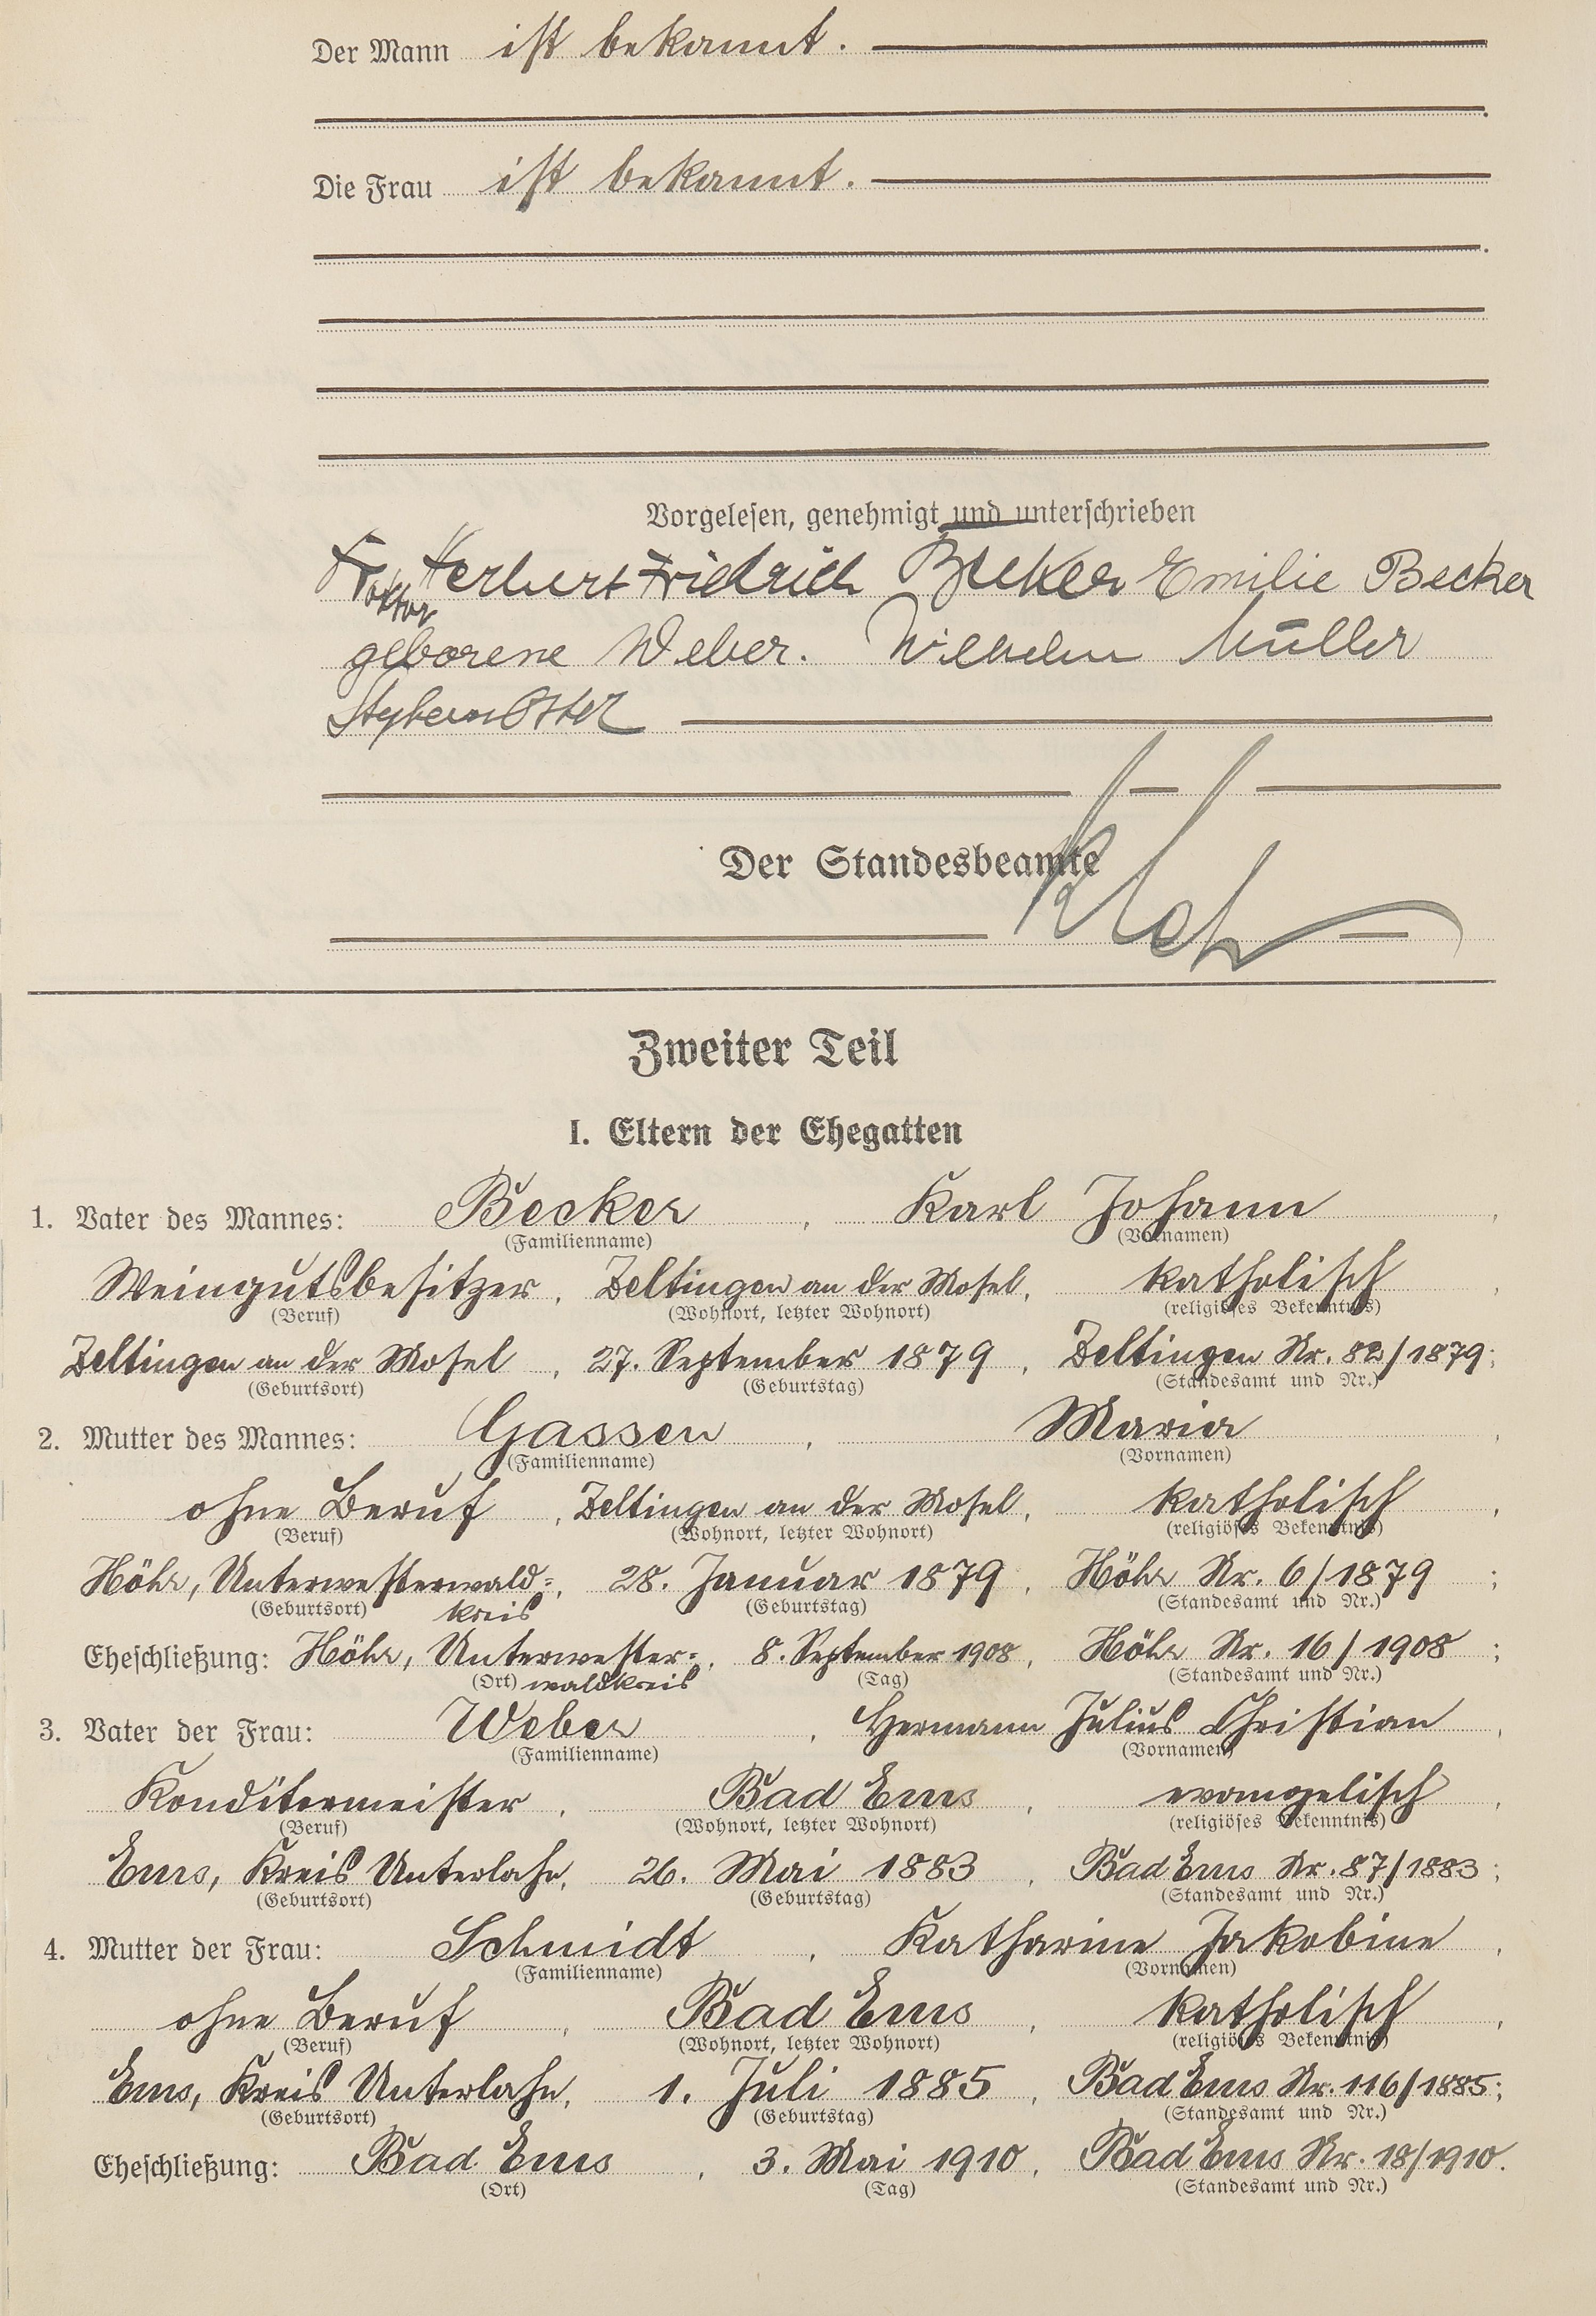 Der Mann ist bekannt.
Die Frau ist bekannt.
Vorgelesen, genehmigt und unterschrieben
Doktor Herbert Friedrich Becker Emilie Becker
geborene Weber. Wilhelm Müller
Der Standesbeamte
Zweiter Teil
I. Eltern der Ehegatten
1. Vater des Mannes: Becker, Karl Johann,
(Familienname) (Vornamen)
Weingutsbesitzer, Zeltingen an der Mosel, katholisch,
(Beruf) (Wohnort, letzter Wohnort) (religiöses Bekenntnis)
Zeltingen an der Mosel, 27. September 1879, Zeltingen Nr. 82/1879;
(Geburtsort) (Geburtstag) (Standesamt und Nr.)
2. Mutter des Mannes: Gassen, Maria,
(Familienname) (Vornamen)
ohne Beruf, Zeltingen an der Mosel, katholisch,
(Beruf) (Wohnort, letzter Wohnort) (religiöses Bekenntnis)
Höhr, Unterwesterwald-, 28. Januar 1879, Höhr Nr. 6/1879;
(Geburtsort) kreis (Geburtstag) (Standesamt und Nr.)
Eheschließung: Höhr, Unterwester-, 8. September 1908, Höhr Nr. 16/1908;
(Ort) waldkreis (Tag) (Standesamt und Nr.)
3. Vater der Frau: Weber, Hermann Julius Christian,
(Familienname) (Vornamen)
Konditormeister, Bad Ems, evangelisch,
(Beruf) (Wohnort, letzter Wohnort) (religiöses Bekenntnis)
Ems, Kreis Unterlahn, 26. Mai 1883, Bad Ems Nr. 87/1883;
(Geburtsort) (Geburtstag) (Standesamt und Nr.)
4. Mutter der Frau: Schmidt, Katharine Jakobine,
(Familienname) (Vornamen)
ohne Beruf, Bad Ems, katholisch,
(Beruf) (Wohnort, letzter Wohnort) (religiöses Bekenntnis)
Ems, Kreis Unterlahn, 1. Juli 1885, Bad Ems Nr. 116/1885;
(Geburtsort) (Geburtstag) (Standesamt und Nr.)
Eheschließung: Bad Ems, 3. Mai 1910, Bad Ems Nr. 18/1910.
(Ort) (Tag) (Standesamt und Nr.)